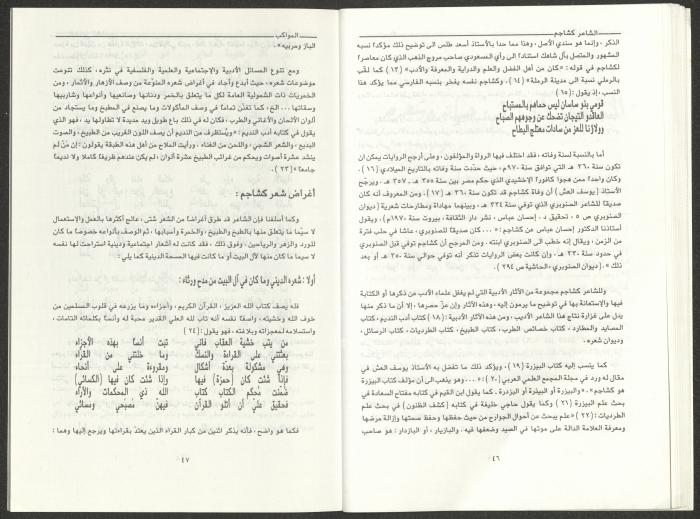 الشاعر كشاجم
الذكر، وإنما هو سندي الأصل، وهذا مما حدا بالأستاذ أسعد طلس الى توضيح ذلك مؤكداً نسبه
المشهور والمتصل بآل شاهك استناداً الى رأي المسعودي صاحب مروج الذهب الذي كان معاصراً
لكشاجم في قوله: « كان من أهل الفضل والعلم والدراية والمعرفة والأدب» (١٣) كما لقّب
بالرملي نسبة الى مدينة الرملة» (١٤)، وكشاجم نفسه يفخر بنسبه الفارسي مما يؤكد هذا
النسب، إذ يقول: (١٥)
قومي بنو ساسان ليس حماهم بالمستباح
العاقدو التيجان تضحك عن وجوههم الصباح
وولازنا للعز من سادات معتلج البطاح
أما بالنسبة لسنة وفاته، فقد اختلف فيها الرواة والمؤلفون، وعلى أرجح الروايات يمكن ان
تكون سنة ٣٦٠ هـ التي توافق سنة ٩٧٠م، حيث حدّدت سنة وفاته بالتاريخ الميلادي (١٦).
وكان واحداً ممن هجوا كافوراً الاخشيدي الذي حكم مصر بين سنة ٣٥٥ - ٣٥٧ هـ. ويرجّح
الأستاذ (يوسف العش) أن وفاة كشاجم قد تكون سنة ٣٦٠ هـ (١٧)، ومن المعروف أنه كان
صديقاً للشاعر الصنوبري الذي توفي سنة ٣٣٤ هـ، وبينهما مهاداة ومطارحات شعرية (ديوان
الصنوبري ص ٥، تحقيق د. إحسان عباس، نشر دار الثقافة، بيروت سنة ١٩٧٠م)، ويقول
أستاذنا الدكتور إحسان عباس عن كشاجم: «... كان صديقاً للصنوبري، عاشا في حلب فترة
من الزمن، ويقال إنه خطب الى الصنوبري ابنته. ومن المرجح أن كشاجم توفي قبل الصنوبري
في حدود سنة ٣٣٠ هـ، وإن كانت بعض الروايات تذكر أنه توفي حوالي سنة ٣٥٠ هـ أو بعد
ذلك». (ديوان الصنوبري - الحاشية ص ٣٩٤).
وللشاعر كشاجم مجموعة من الآثار الأدبية التي لم يغفل علماء الأدب عن ذكرها أو الكتابة
فيها والإستعانة بها في توضيح ما يرمون إليه، وهذه الآثار وإن عزّ حصرها، إلا أن ما ذكر منها
يدل على غزارة نتاج هذا الشاعر الأديب، ومن هذه الآثار الأدبية: (١٨) كتاب أدب النديم، كتاب
المصايد والمطارد، كتاب خصائص الطرب، كتاب الطبيخ، كتاب الطرديات، كتاب الرسائل،
وديوان شعره.
كما ينسب إليه كتاب البيزرة (١٩)، ويؤكد ذلك ما تفضل به الأستاذ يوسف العش في
مقال له ورد في مجلة المجمع العلمي العربي (٢٠): «... وهو يذهب الى أن مؤلف كتاب البيزرة
هو كشاجم». «والبيزرة أو البيئزة أو البزدرة. كما يقول ابن القيم في كتابه مفتاح السعادة في
بحث علم البيزرة (٢١) وكما يقول حاجي خليفة في كتابه (كشف الظنون) في بحث علم
الطرديات: (٢٢) «علم يبحث عن أحوال الجوارح من حيث حفظها وحفظ صحتها وإزالة مرضها
ومعرفة العلامة الدالة على موتها في الصيد وضعفها فيه. والبازيار، أو البازدار: هو صاحب
٤٦
المواكب
الباز ومربيه».
ومع تنوع المسائل الأدبية والإجتماعية والعلمية والفلسفية في نثره، كذلك تنوعت
موضوعات شعره، حيث أبدع وأجاد في أغراض شعره المتنوّعة من وصف الأزهار والأثمار، ومن
الخمريات ذات الشمولية العامة لكل ما يتعلق بالخمر ودنانها وصانعيها وأنواعها وشاربيها
وسقاتها... الخ، كما تفنّن تماماً في وصف المأكولات وما يصنع في المطبخ وما يستجاد من
ألوان الألحان والأغاني والطرب، فكان له في ذلك باع طويل ويد مديدة لا تطاولها يد، فهو الذي
يقول في كتابه أدب النديم: «ويُستظرف من النديم أن يصف اللون الغريب من الطبيخ، والصوت
البديع، والشعر الشجي، واللحن من الغناء، ورأيت الملاح من أهل هذه الطبقة يقولون: إن مَنْ لم
ينشد عشرة أصوات ويحكم من غرائب الطبيخ عشرة ألوان، لم يكن عندهم ظريفاً كاملا ولا نديماً
جامعاً» (٢٣).
أغراض شعر كشاجم:
وكما أسلفنا فإن الشاعر قد طرق أغراضاً من الشعر شتى، عالج أكثرها بالعمل والإستعمال
لا سيّما ما يتعلق منها بالطبخ والطبيخ، والخمرة وأسبابها، ثم الوصف بأنواعه خصوصاً ما كان
للورد والزهر والرياحين، وفوق ذلك، فقد كانت له أشعار اجتماعية ودينية استراحت لها نفسه
لا سيما ما كان منها لآل البيت أو ما كانت فيها المسحة الدينية كما يلي:
أولا: شعره الديني وما كان في آل البيت من مدح ورثاء:
فله يصف كتاب الله العزيز، القرآن الكريم، وأجزاءه وما يزرعه في قلوب المسلمين من
خوف الله وخشيته، واصفاً نفسه أنه تاب لله العلي القدير محبة له وأنساً بكلماته التامات،
واستسلامه لمعجزاته وبلاغته، فهو يقول: (٢٤)
من يتب خشية العقاب فإني تبت أنساً بهذه الأجزاء
بعثتني على القراءة والنسك وما خلتني من القراء
وهي مشكولة بعدة أشكال ومقروءة على أنحاء
فإذا شئت كان (حمزة) فيها وإذا شئت كان فيها (الكسائي)
ضُمّنت مُحكم الكتاب كتاب الله ذي المحكمات والآراء
فحقيق علي أن أتلو القرآن فيهنّ مُصبحي ومسائي
فكما هو واضح، فأنه يذكر اثنين من كبار القراء الذين يعتدّ بقراءتها ويرجع إليها وهما:
٤٧